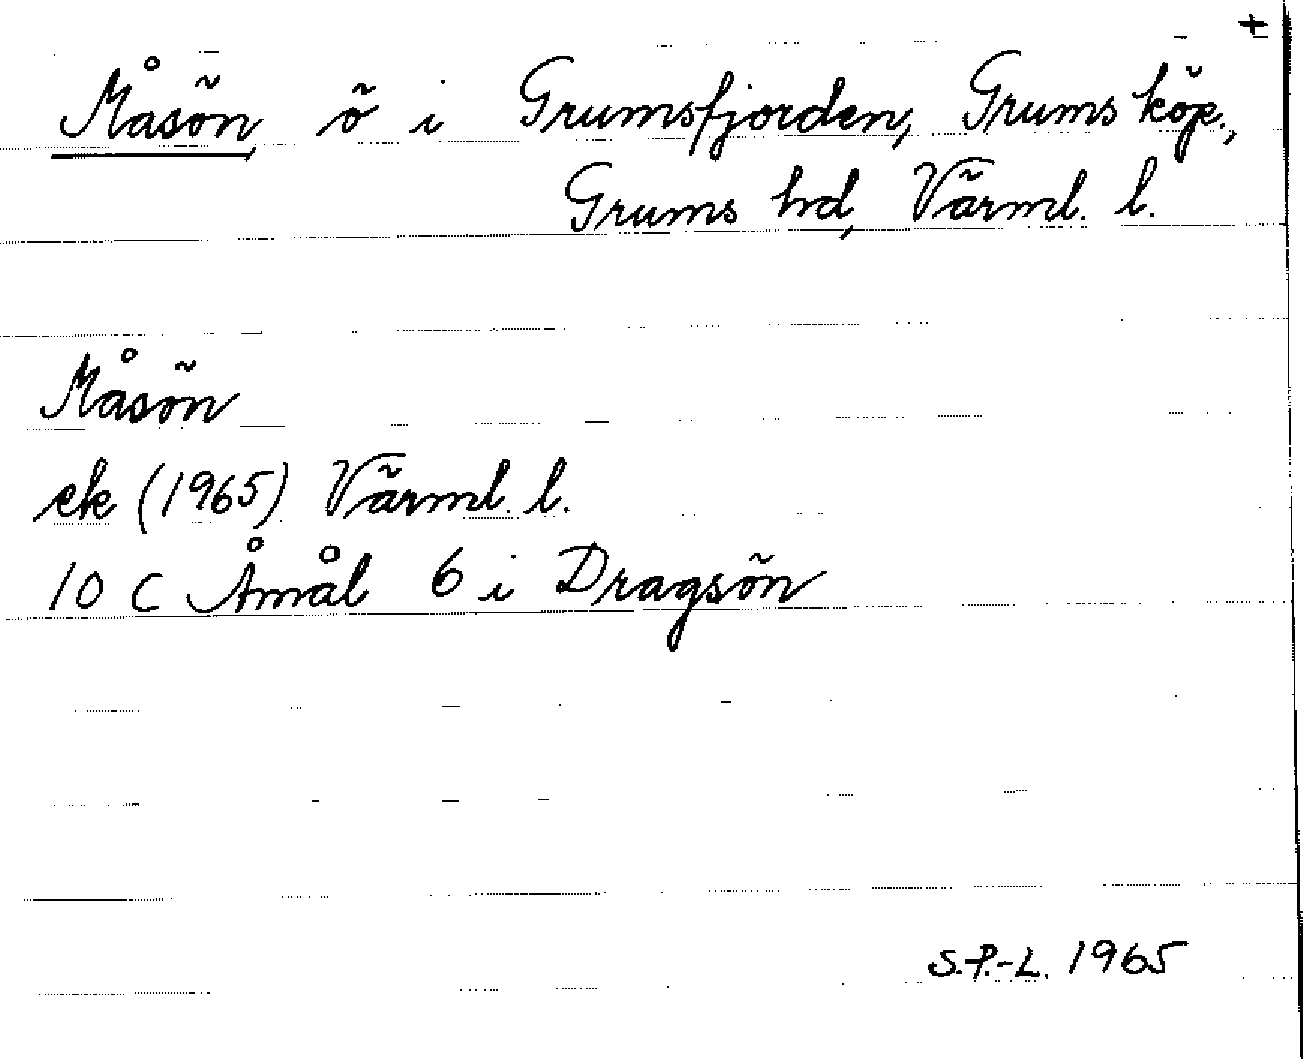 +
Måsön, ö i Grumsfjorden, Grums köp.,
Grums hd, Värml. l.
Måsön
ek (1965) Värml. l.
10 C Åmål 6 i Dragsön
S.P.-L. 1965